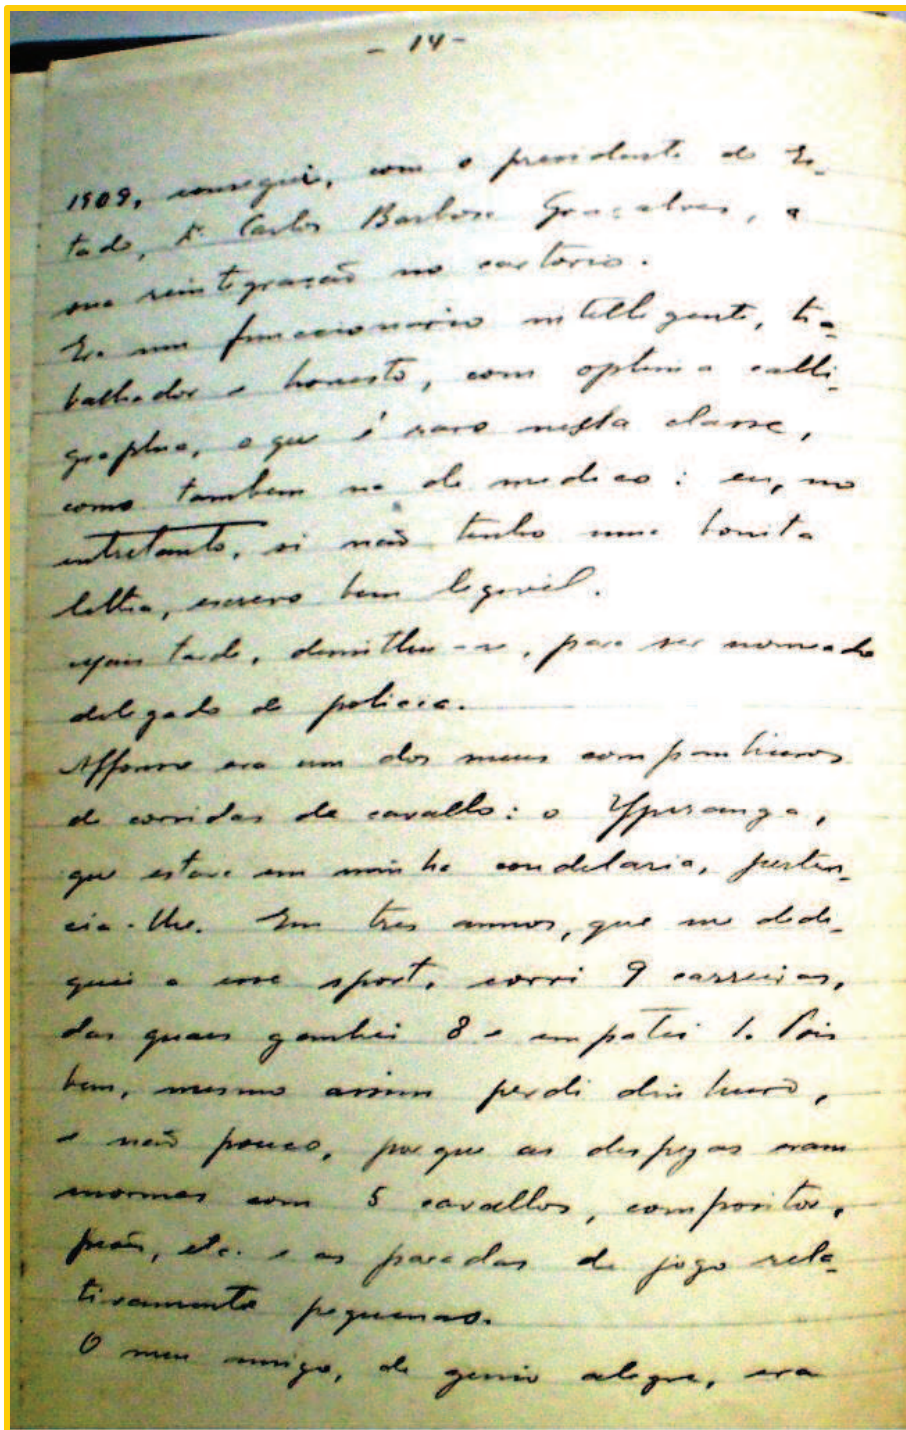 - 14 -
1909, consegui, com o presidente do Es-
tado, Dr Carlos Barbosa Gonçalves, a
sua reintegração no cartorio.
Era um funccionario intelligente, tra-
balhador e honesto, com optima calli-
graphia, o que é raro nesta classe,
como tambem na de medico: eu, no
entretanto, si não tenho uma bonita
lettra, escrevo bem legivel.
Mais tarde, demittiu-se, para ser nomeado
delegado de policia.
Affonso era um dos meus companheiros
de corridas de cavallo: o Ypiranga,
que estava em minha coudelaria, perten-
cia-lhe. Em tres annos, que me dedi-
quei a esse sport, corri 9 carreiras,
das quaes ganhei 8 e empatei 1. Pois
bem, mesmo assim perdi dinheiro,
e não pouco, porque as despezas eram
enormes com 5 cavallos, compositor,
peão, etc. e as paradas de jogo rela-
tivamente pequenas.
O meu amigo, de genio alegre, era